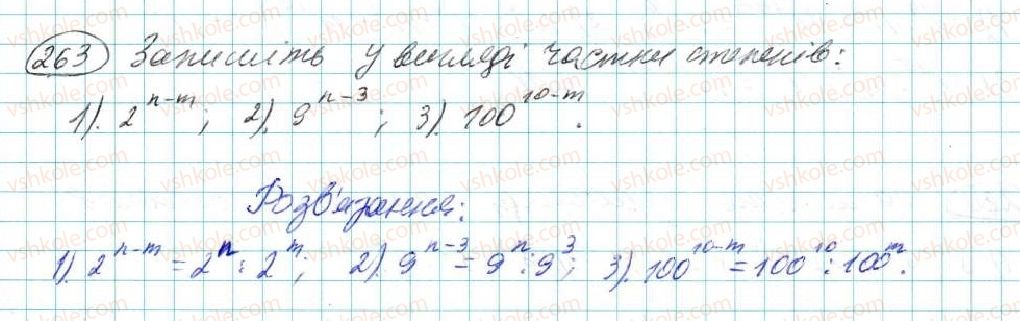 263 Запишіть у вигляді частки степенів:
1). 2^{n-m}; 2). 9^{n-3}; 3). 100^{10-m}.
Розв'язання:
1). 2^{n-m} = 2^n : 2^m; 2). 9^{n-3} = 9^n : 9^3; 3). 100^{10-m} = 100^{10} : 100^m.